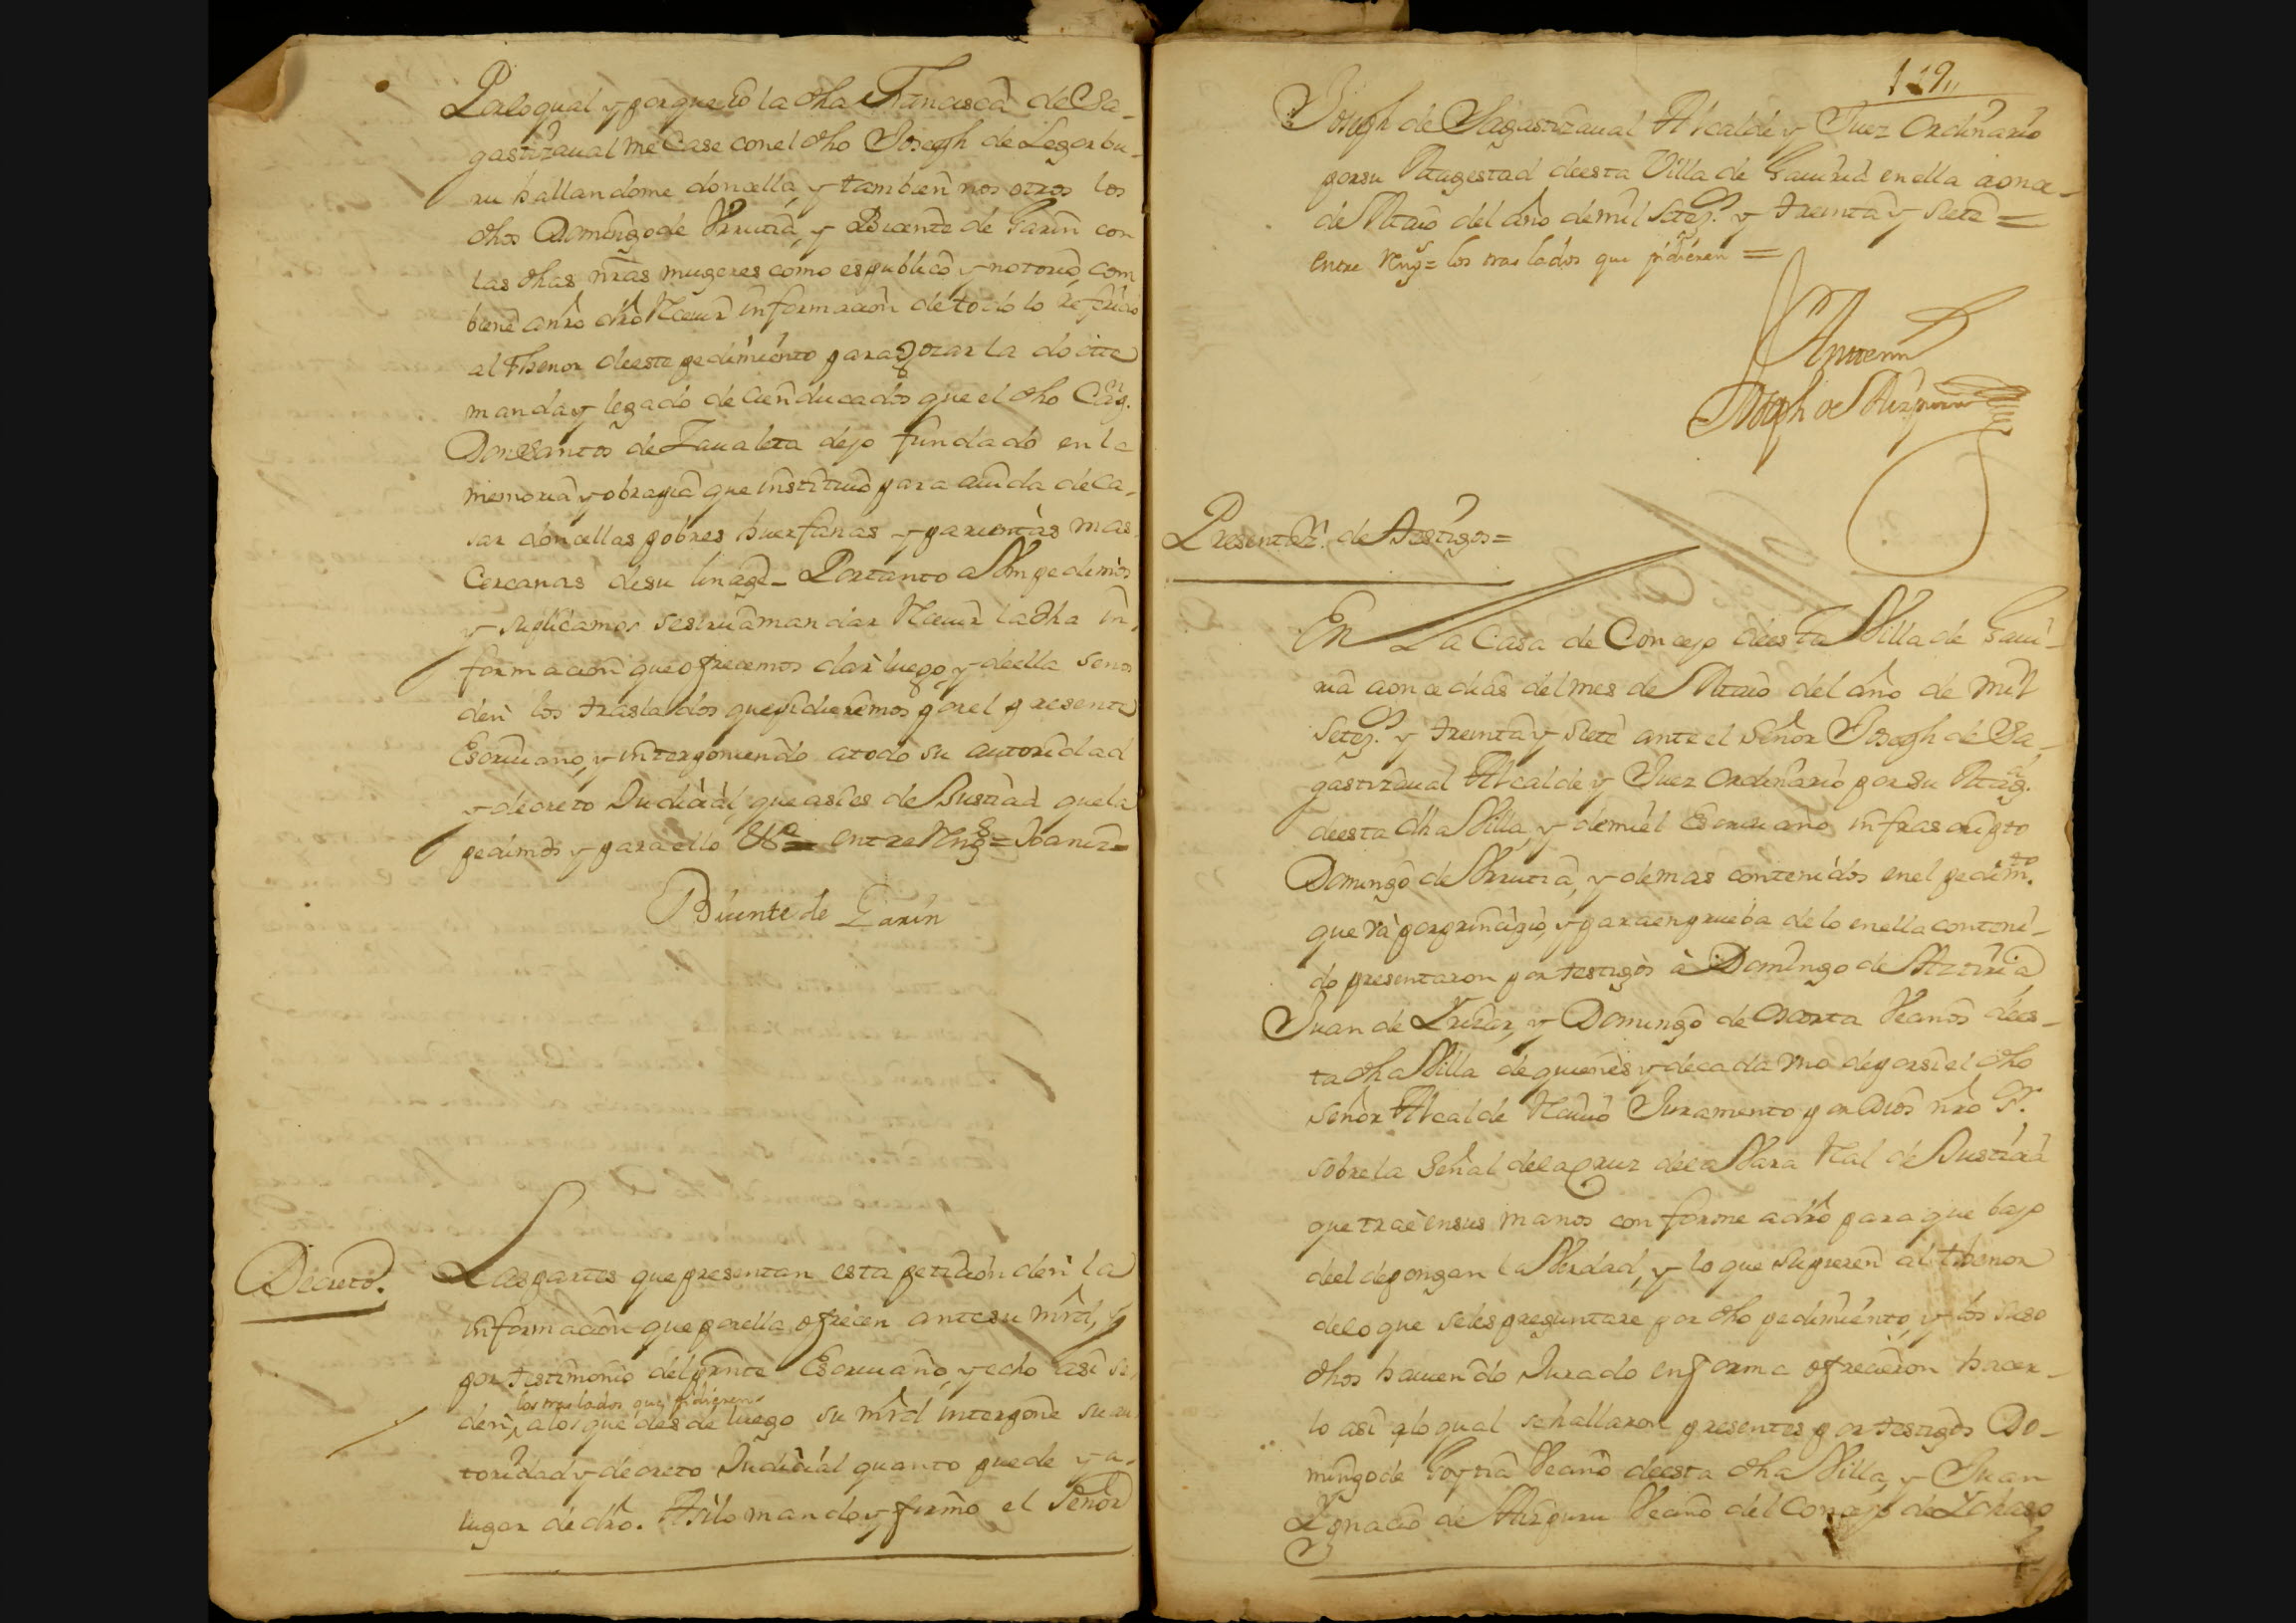 Por lo qual y porque io la dha Francisca de Sa-
gastizaual me Case con el dho Joseph de Legorbu-
ru hallandome doncella, y tambien nos otros los
dhos Domingo de Vrrutia, y Bicente de Garin con
las dhas nras mugeres como es publico y notorio, com
biene a nro dro Receuir informacion de todo lo referido
al thenor de este pedimiento para gozar la dotte
manda y legado de cien ducados que el dho Cap.
Don Santos de Zaualeta dejo fundado en la
memoria y obra pia que instituio para aiuda de Ca-
sar doncellas pobres huerfanas y parientas mas
Cercanas de su linage_ Por tanto a Vm pedimos
y suplicamos se sirua mandar Receuir la dha in-
formacion que ofrecemos dar luego, y de ella se nos
den los traslados que pidieremos por el presente
Escriuano, y interponiendo a todo su autoridad
y decreto Judicial, que asi es de Justicia que la
pedimos y para ello &a = entre Rengs = Joaniz =
Bicente de Garin
Decreto.
Las partes que presentan esta peticion den la
informacion que por ella ofrecen ante su mrd, y
por testimonio del prnte Escriuano, y echo asi se
los traslados que pidieren
den, a los que desde luego su mrd interpone su au
toridad y decreto Judicial quanto puede y a
lugar de dro. Asi lo mando y firmo el Señor
119,,
Joseph de Sagastizaual Alcalde y Juez Ordinario
por su Magestad de esta Villa de Gauiria en ella a onze
de Maio del año de mil Setez.s y treinta y siete =
entre reng.s = los traslados que pidieren =
Ante mi
Joseph de Aizpuru
Presentaz.n de testigos =
En La Casa de Concejo de esta Villa de Gaui-
ria a once dias del mes de Maio del año de mil
Setez.s y treinta y siete ante el Señor Joseph de Sa-
gastizaual Alcalde y Juez Ordinario por su Mag.d
de esta dha Villa, y de mi el Escriuano infrascripto
Domingo de Vrrutia, y demas contenidos en el pedim.to
que va por principio, y para en prueba de lo en ella conteni-
do presentaron por testigos à Domingo de Aztiria
Juan de Yrizar, y Domingo de Ocorta Vecinos de es-
ta dha Villa de quienes y de cada vno de por si el dho
Señor Alcalde Reciuio Juramento por Dios nro S.r
sobre la Señal de la Cruz de la Vara Real de Justicia
que trae en sus manos conforme a dro para que bajo
de el depongan la Verdad, y lo que supieren al thenor
de lo que se les preguntare por dho pedimiento, y los suso
dhos hauiendo Jurado en forma ofrecieron hacer-
lo asi a lo qual se hallaron presentes por testigos Do-
mingo de Goytia Vecino de esta dha Villa, y Juan
Ygnacio de Aizpuru Vecino del Concejo de Ychaso